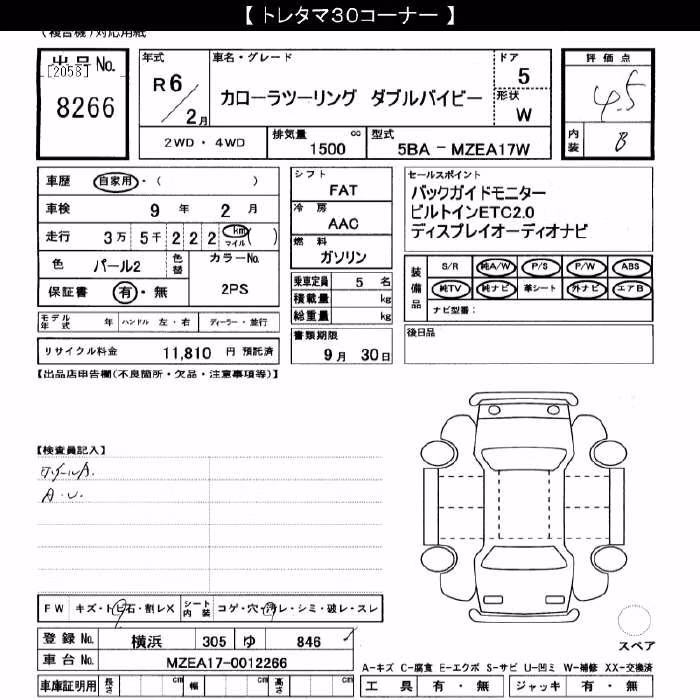 【 トレタマ30コーナー 】
(複合機)対応用紙
出品No.
[2058]
8266
年式 車名・グレード ドア
R6/2月 カローラツーリング ダブルバイビー 5
形状 W
2WD・4WD 排気量 cc 1500 型式 5BA-MZEA17W
評価点
4.5
内装 B
車歴 自家用・( )
車検 9 年 2 月
走行 3万 5千 2 2 2 km マイル ( )
色 パール2 色替 カラーNo.
保証書 有・無 2PS
モデル年式 年 ハンドル 左・右 ディーラー・並行
リサイクル料金 11,810 円 預託済
シフト FAT
冷房 AAC
燃料 ガソリン
乗車定員 5 名
積載量 kg
総重量 kg
書類期限
9月 30日
セールスポイント
バックガイドモニター
ビルトインETC2.0
ディスプレイオーディオナビ
装備品 S/R 純A/W P/S P/W ABS
純TV 純ナビ 革シート 外ナビ エアB
ナビ型番:
後日品
【出品店申告欄(不良箇所・欠品・注意事項等)】
【検査員記入】
A.U.
FW キズ・トビ石・割レX シート内装 コゲ・穴・汚レ・シミ・破レ・スレ
登録No. 横浜 305 ゆ 846
車台No. MZEA17-0012266
車庫証明用 長さ cm 幅 cm 高さ cm
スペア
A-キズ C-腐食 E-エクボ S-サビ U-凹ミ W-補修 XX-交換済
工具 有・無 ジャッキ 有・無